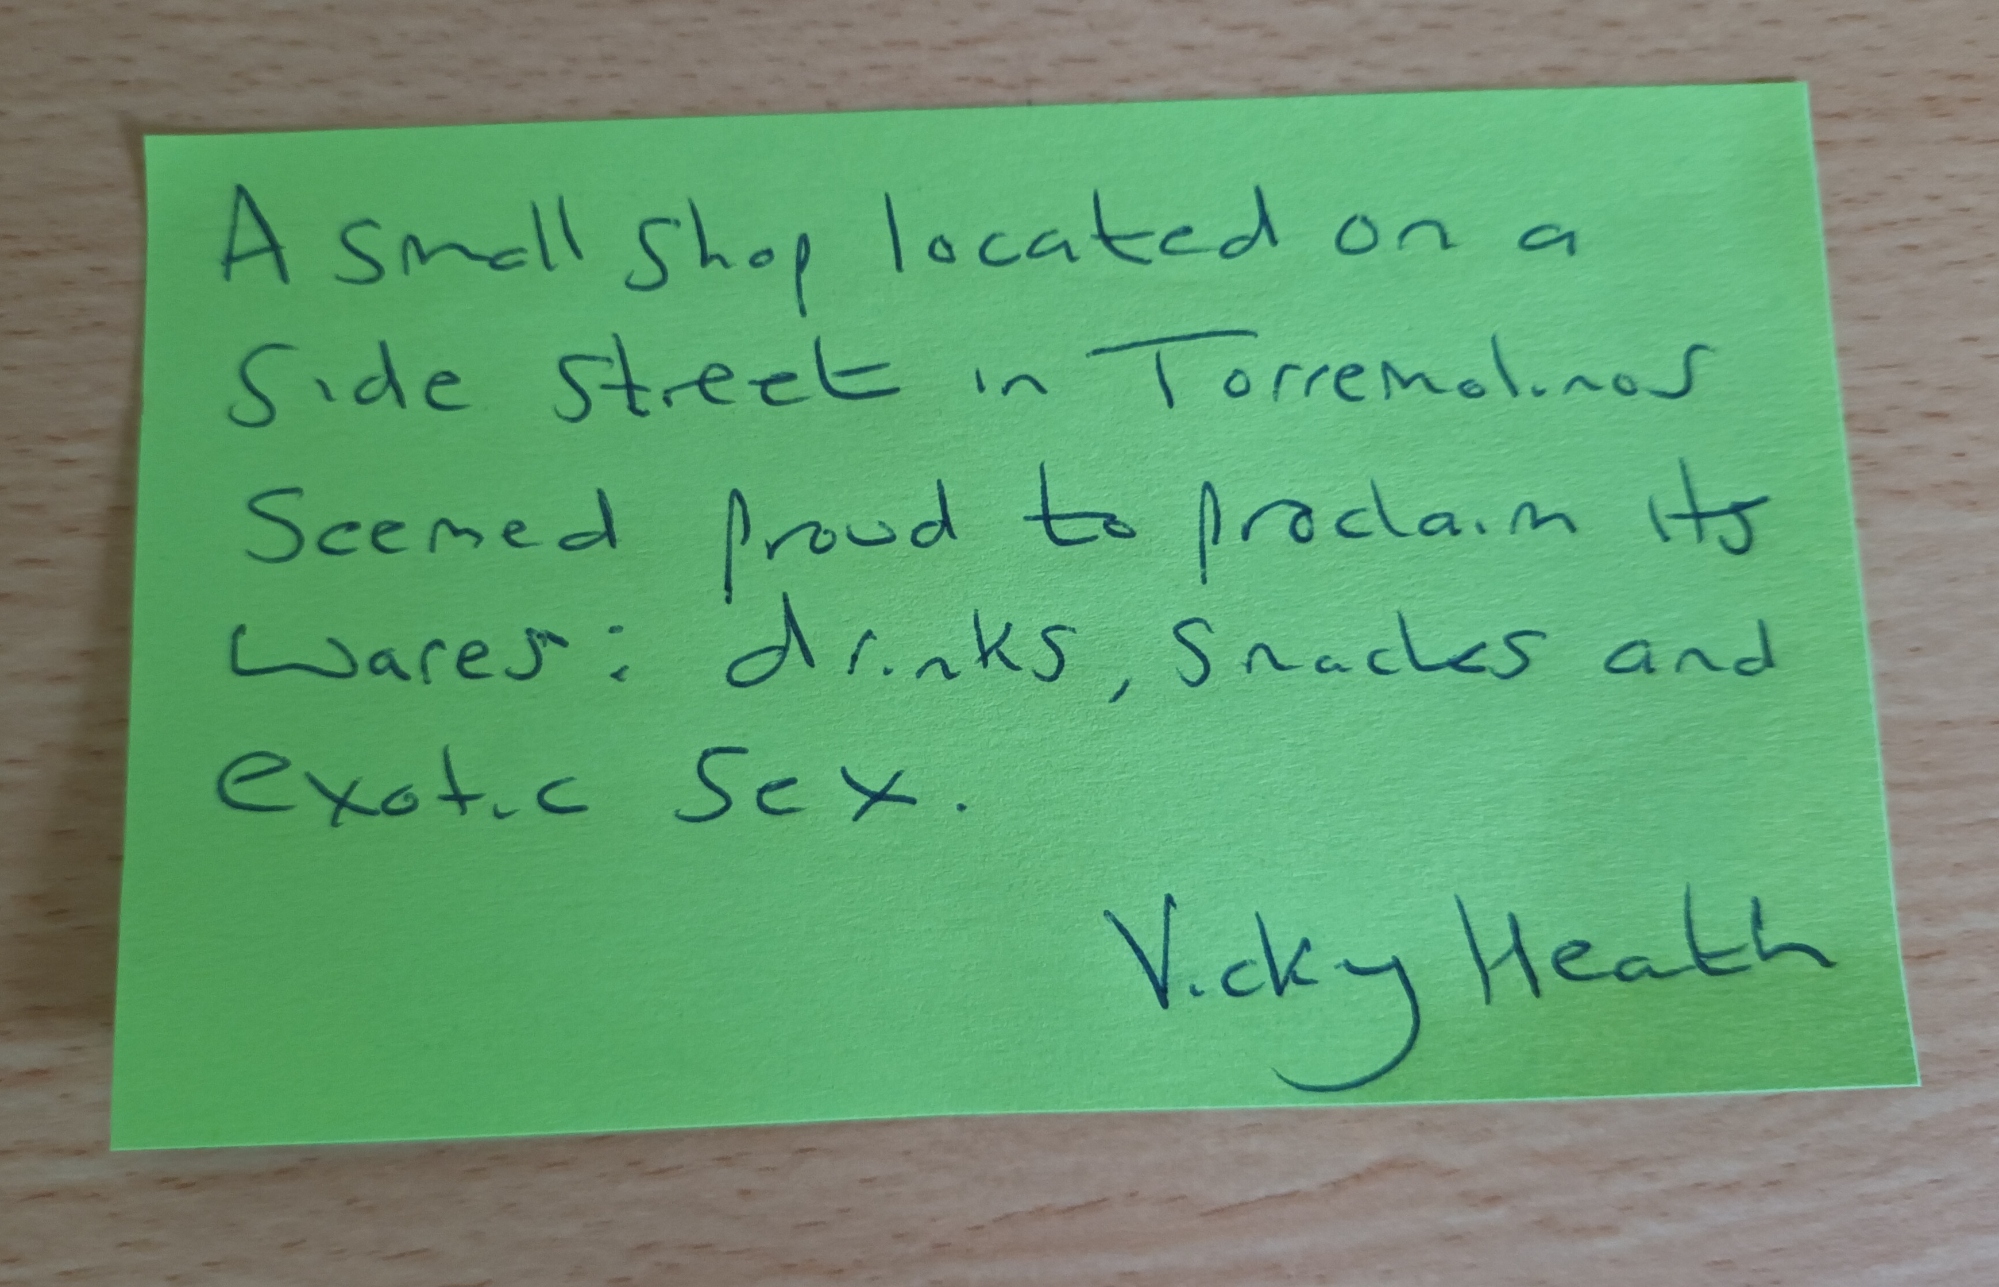 A small shop located on a
side street in Torremolinos
seemed proud to proclaim its
wares: drinks, snacks and
exotic sex.
Vicky Heath